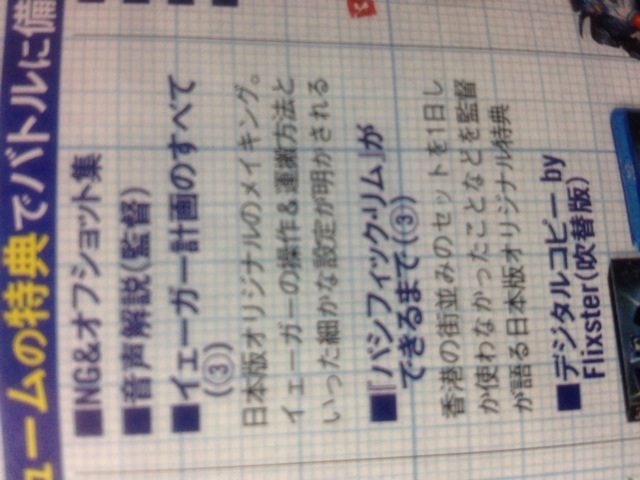 ュームの特典でバトルに備
■NG&オフショット集
■音声解説(監督)
■イェーガー計画のすべて
(③)
日本版オリジナルのメイキング。
イェーガーの操作&運搬方法と
いった細かな設定が明かされる
■『パシフィック・リム』が
できるまで(③)
香港の街並みのセットを1日し
か使わなかったことなどを監督
が語る日本版オリジナル特典
■デジタルコピー by
Flixster(吹替版)